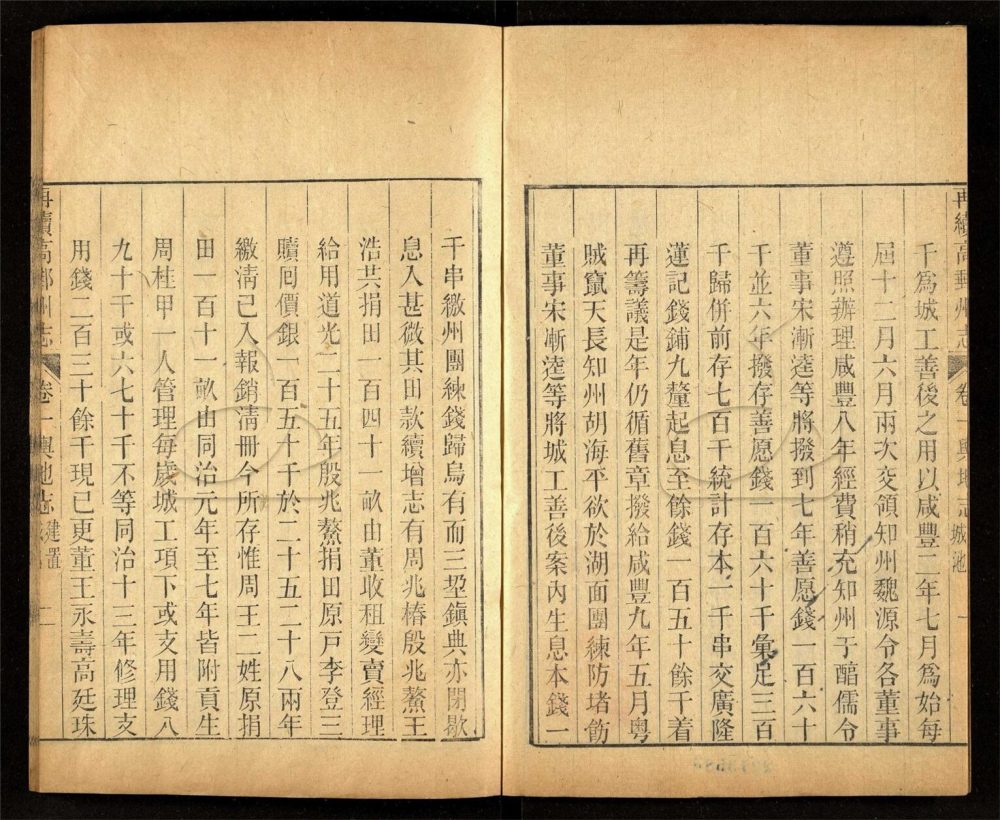 再續高郵州志 卷一 輿地志 城池 一
千爲城工善後之用以咸豐二年七月爲始每
屆十二月六月兩次交領知州魏源令各董事
遵照辦理咸豐八年經費稍充知州于醕儒令
董事宋漸逵等將撥到七年善愿錢一百六十
千並六年撥存善愿錢一百六十千彙足三百
千歸併前存七百千統計存本一千串交廣隆
蓮記錢鋪九釐起息至餘錢一百五十餘千着
再籌議是年仍循舊章撥給咸豐九年五月粵
賊竄天長知州胡海平欲於湖面團練防堵飭
董事宋漸逵等將城工善後案內生息本錢一
千串繳州團練錢歸烏有而三垛鎭典亦閉歇
息入甚微其田款續增志有周兆椿殷兆鰲王
浩共捐田一百四十一畝由董收租變賣經理
給用道光二十五年殷兆鰲捐田原戸李登三
贖囘價銀一百五十千於二十五二十八兩年
繳淸已入報銷淸冊今所存惟周王二姓原捐
田一百十一畝由同治元年至七年皆附貢生
周桂甲一人管理每歲城工項下或支用錢八
九十千或六七十千不等同治十三年修理支
用錢二百三十餘千現已更董王永壽高廷珠
再續高郵州志 卷一 輿地志 建置 二